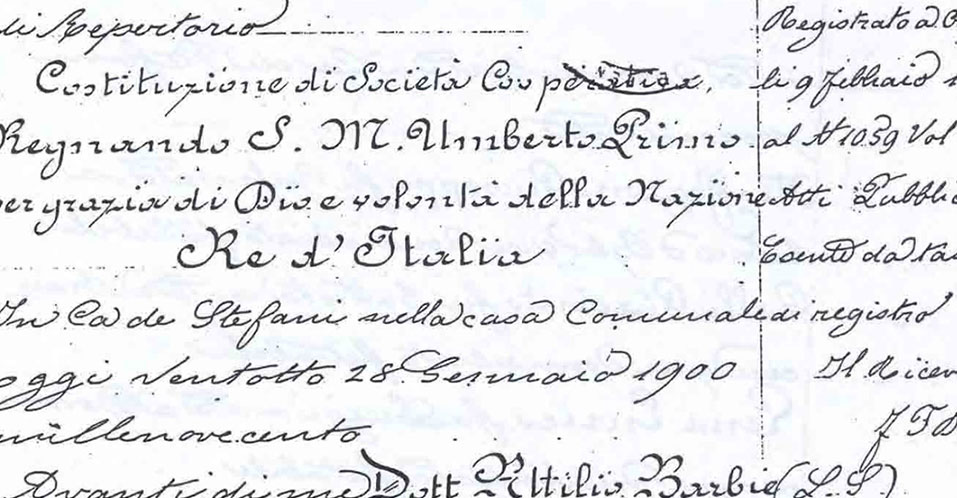 di Repertorio
Costituzione di Società Cooperativa,
Regnando S. M. Umberto Primo
per grazia di Dio e volontà della Nazione
Re d'Italia
In Ca de Stefani nella casa Comunale
oggi ventotto 28 Gennaio 1900
millenovecento
Avanti di me Dott Attilio Barbié (L.S)
Registrato a
li 9 febbraio
al N 1059 Vol
Atti Pubblic
Esente da tas
di registro
Il Ricev